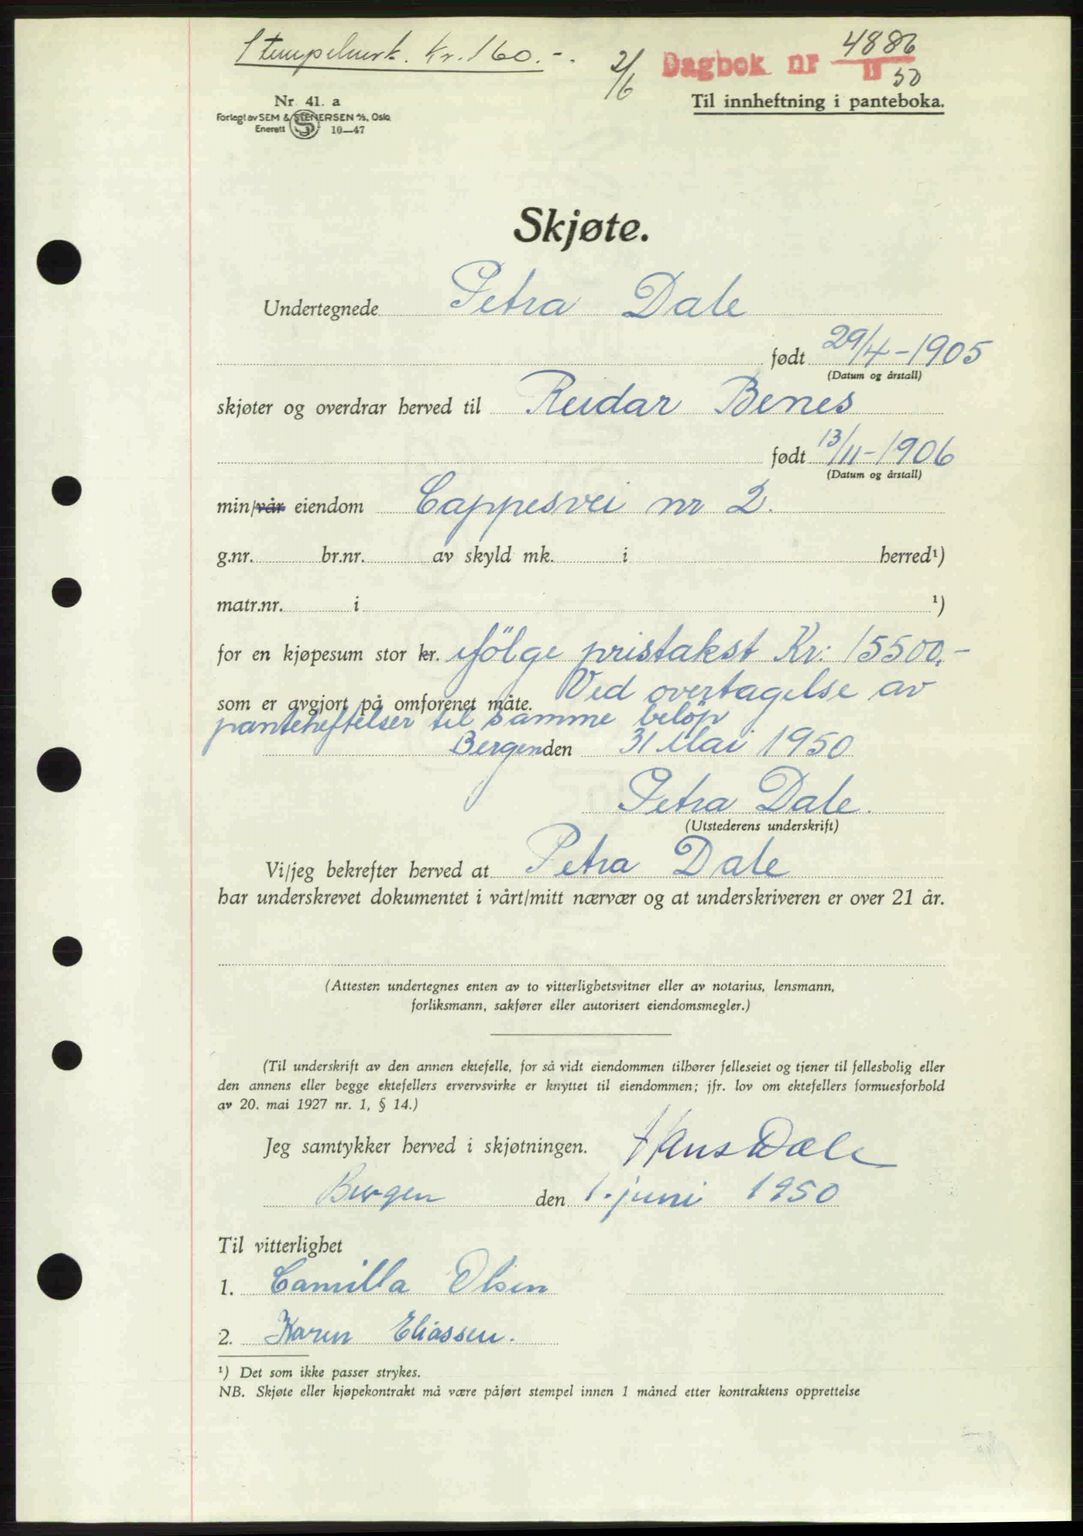 Stempelmerk. Kr. 160.-.
2/6
Dagbok nr 4886
II 50
Til innheftning i panteboka.
Nr. 41. a
Forlagt av SEM & STENERSEN A/S, Oslo
Enerett S 10-47
Skjøte.
Undertegnede Petra Dale
født 29/4-1905
(Datum og årstall)
skjøter og overdrar herved til Reidar Benes
født 13/11-1906
(Datum og årstall)
min/vår eiendom Cappesvei nr 2.
g.nr. br.nr. av skyld mk. i herred¹)
matr.nr. i ¹)
for en kjøpesum stor kr. ifölge pristakst Kr: 15500.-
som er avgjort på omforenet måte. Ved overtagelse av
panteheftelser til samme belöp
Bergen den 31 Mai 1950
Petra Dale.
(Utstederens underskrift)
Vi/jeg bekrefter herved at Petra Dale
har underskrevet dokumentet i vårt/mitt nærvær og at underskriveren er over 21 år.
(Attesten undertegnes enten av to vitterlighetsvitner eller av notarius, lensmann,
forliksmann, sakfører eller autorisert eiendomsmegler.)
(Til underskrift av den annen ektefelle, for så vidt eiendommen tilhører felleseiet og tjener til fellesbolig eller
den annens eller begge ektefellers ervervsvirke er knyttet til eiendommen; jfr. lov om ektefellers formuesforhold
av 20. mai 1927 nr. 1, § 14.)
Jeg samtykker herved i skjøtningen. Hans Dale
Bergen den 1. juni 1950
Til vitterlighet
1. Camilla Olsen
2. Karen Eliassen.
¹) Det som ikke passer strykes.
NB. Skjøte eller kjøpekontrakt må være påført stempel innen 1 måned etter kontraktens opprettelse